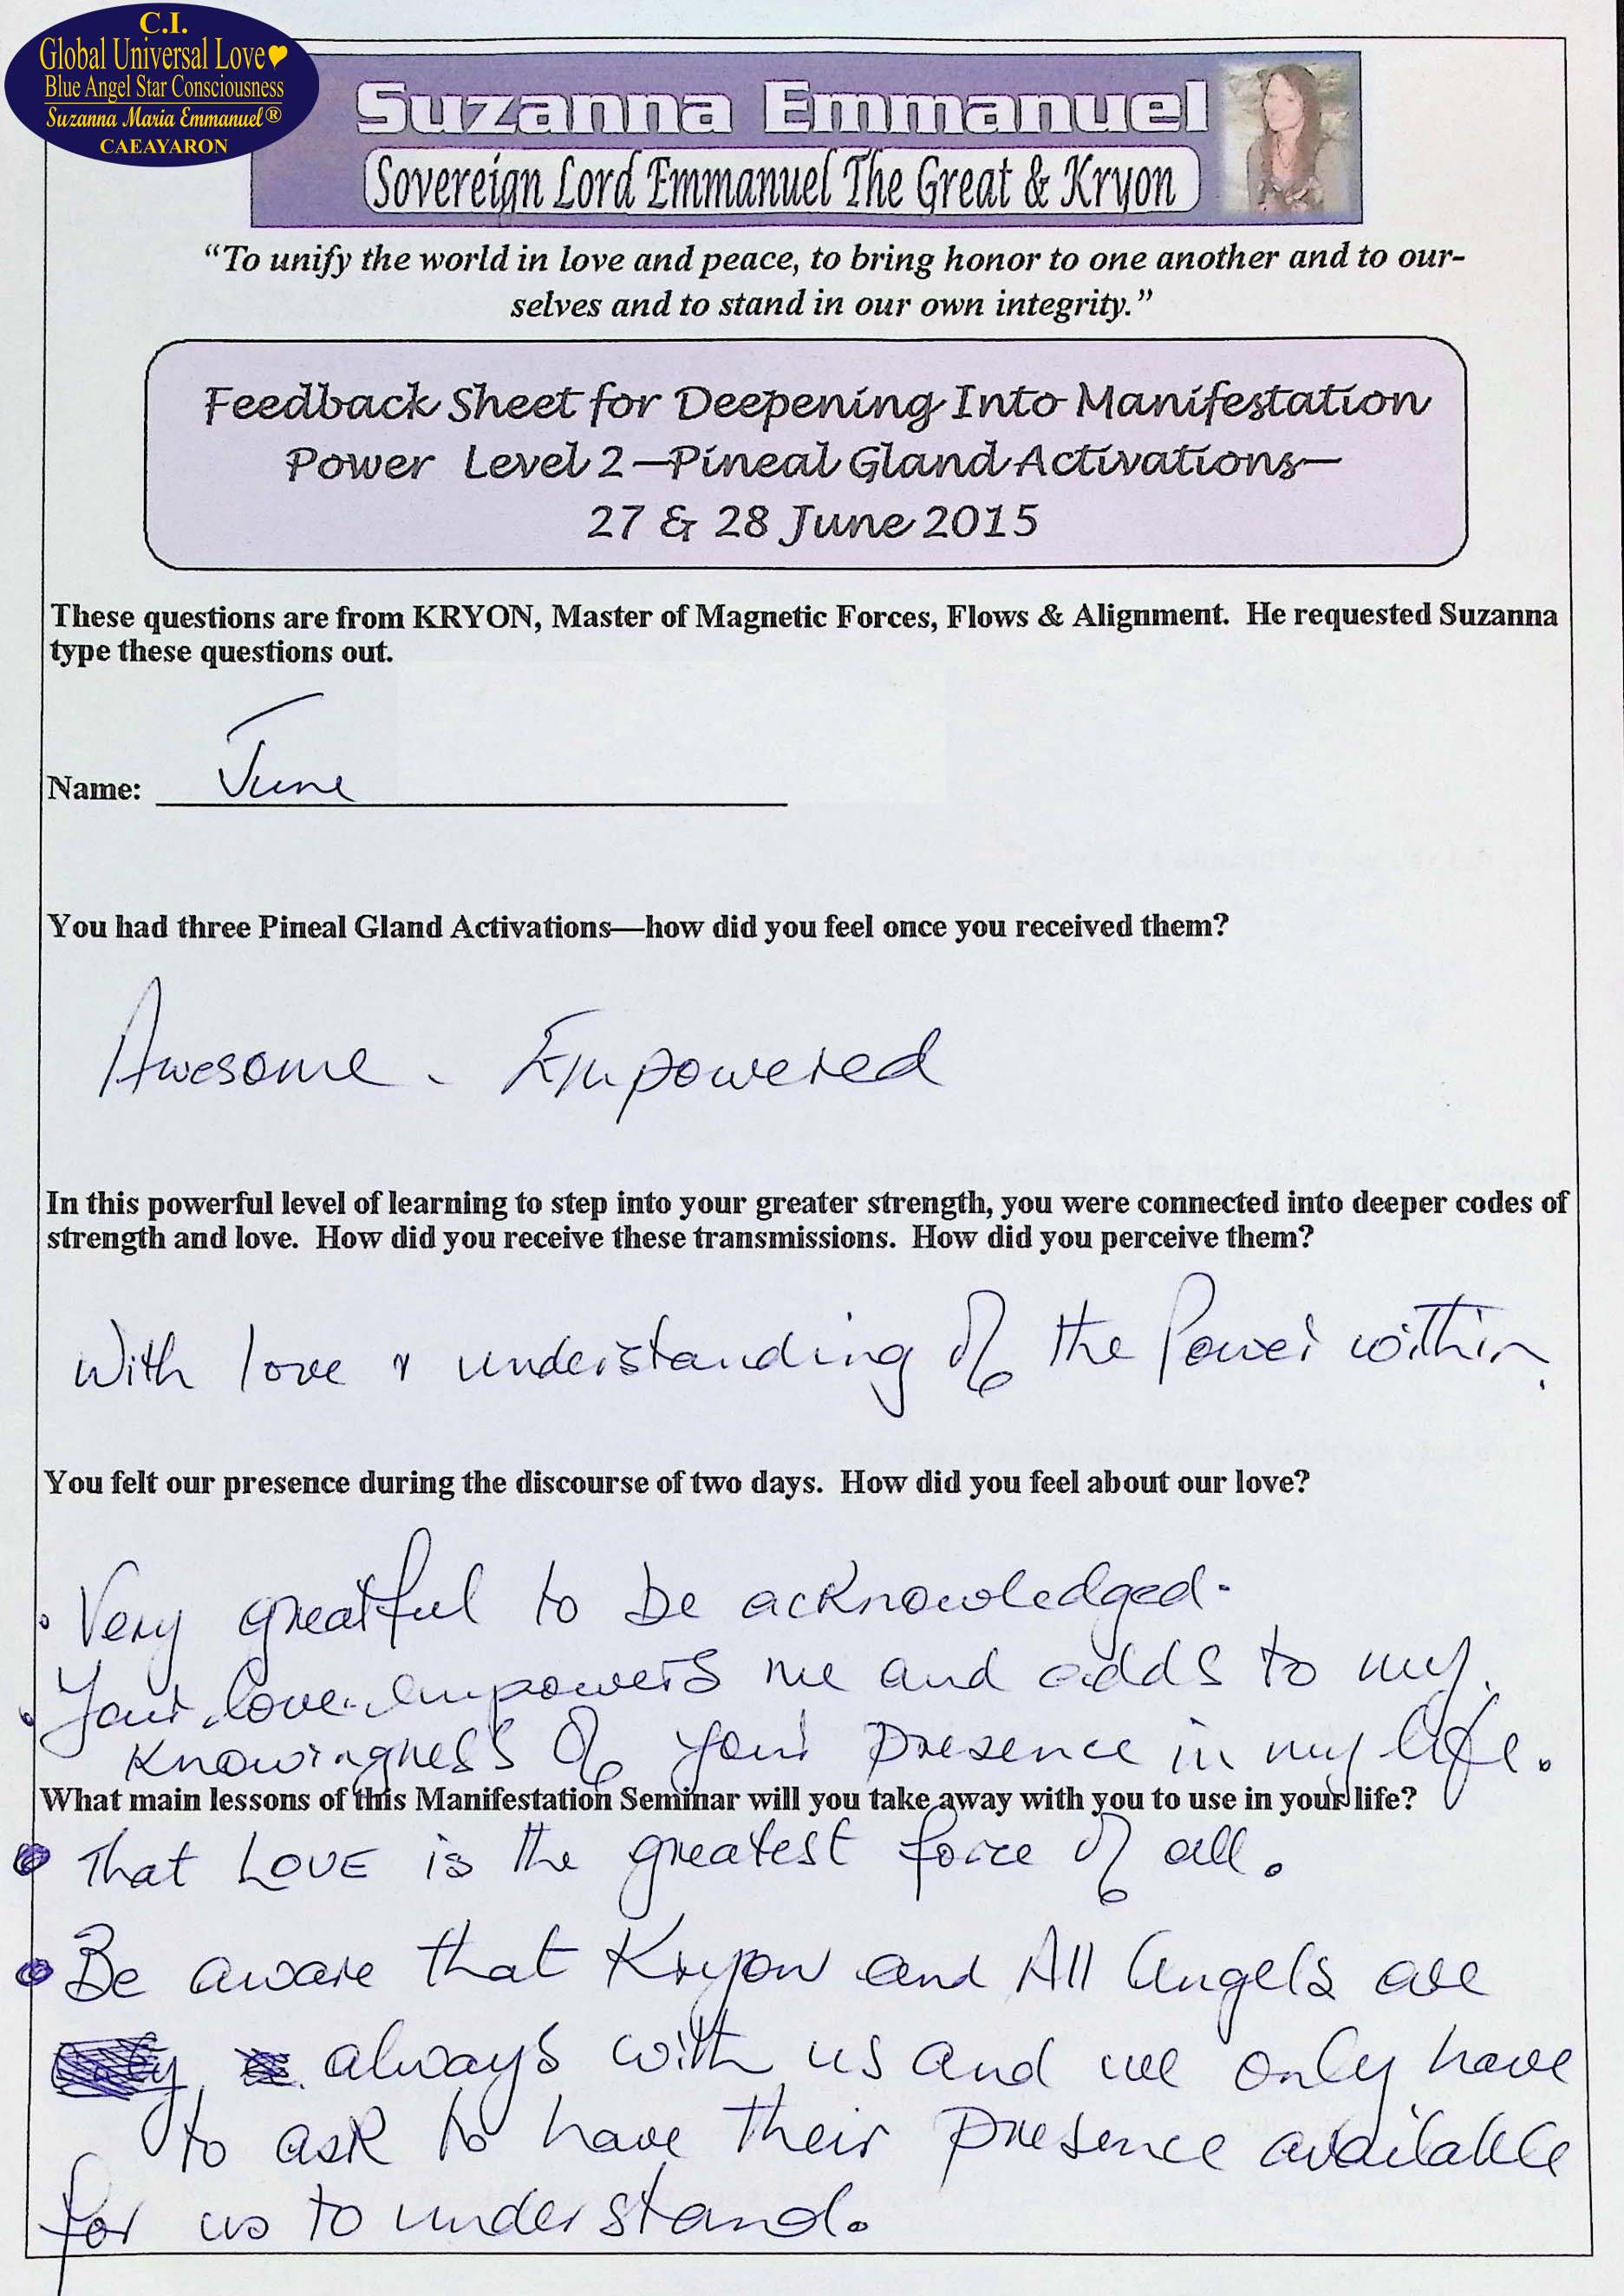 C.I.
Global Universal Love
Blue Angel Star Consciousness
Suzanna Maria Emmanuel®
CAEAYARON
Suzanna Emmanuel
Sovereign Lord Emmanuel The Great & Kryon
“To unify the world in love and peace, to bring honor to one another and to our-
selves and to stand in our own integrity.”
Feedback Sheet for Deepening Into Manifestation
Power Level 2—Pineal Gland Activations—
27 & 28 June 2015
These questions are from KRYON, Master of Magnetic Forces, Flows & Alignment. He requested Suzanna
type these questions out.
Name: June
You had three Pineal Gland Activations—how did you feel once you received them?
Awesome - Empowered
In this powerful level of learning to step into your greater strength, you were connected into deeper codes of
strength and love. How did you receive these transmissions. How did you perceive them?
With love & understanding of the Power within.
You felt our presence during the discourse of two days. How did you feel about our love?
• Very greatful to be acknowledged.
• Your love empowers me and adds to my
knowingness of your presence in my life.
What main lessons of this Manifestation Seminar will you take away with you to use in your life?
• That LOVE is the greatest force of all.
• Be aware that Kryon and All Angels are
always with us and we only have
to ask to have their presence available
for us to understand.